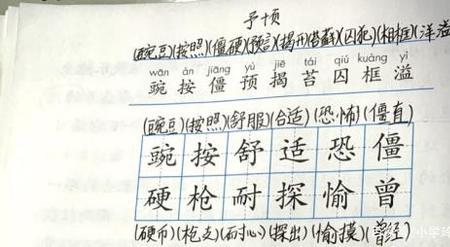 予十页
(豌豆)(按照)(僵硬)(预言)(揭开)(苔藓)(囚犯)(相框)(洋溢
wān àn jiāng yù jiē tái qiú kuàng yì
豌 按 僵 预 揭 苔 囚 框 溢
(豌豆)(按照)(舒服)(合适)(恐怖)(僵直)
豌 按 舒 适 恐 僵
硬 枪 耐 探 愉 曾
(硬币)(枪支)(耐心)(探出)(曾经)
小学